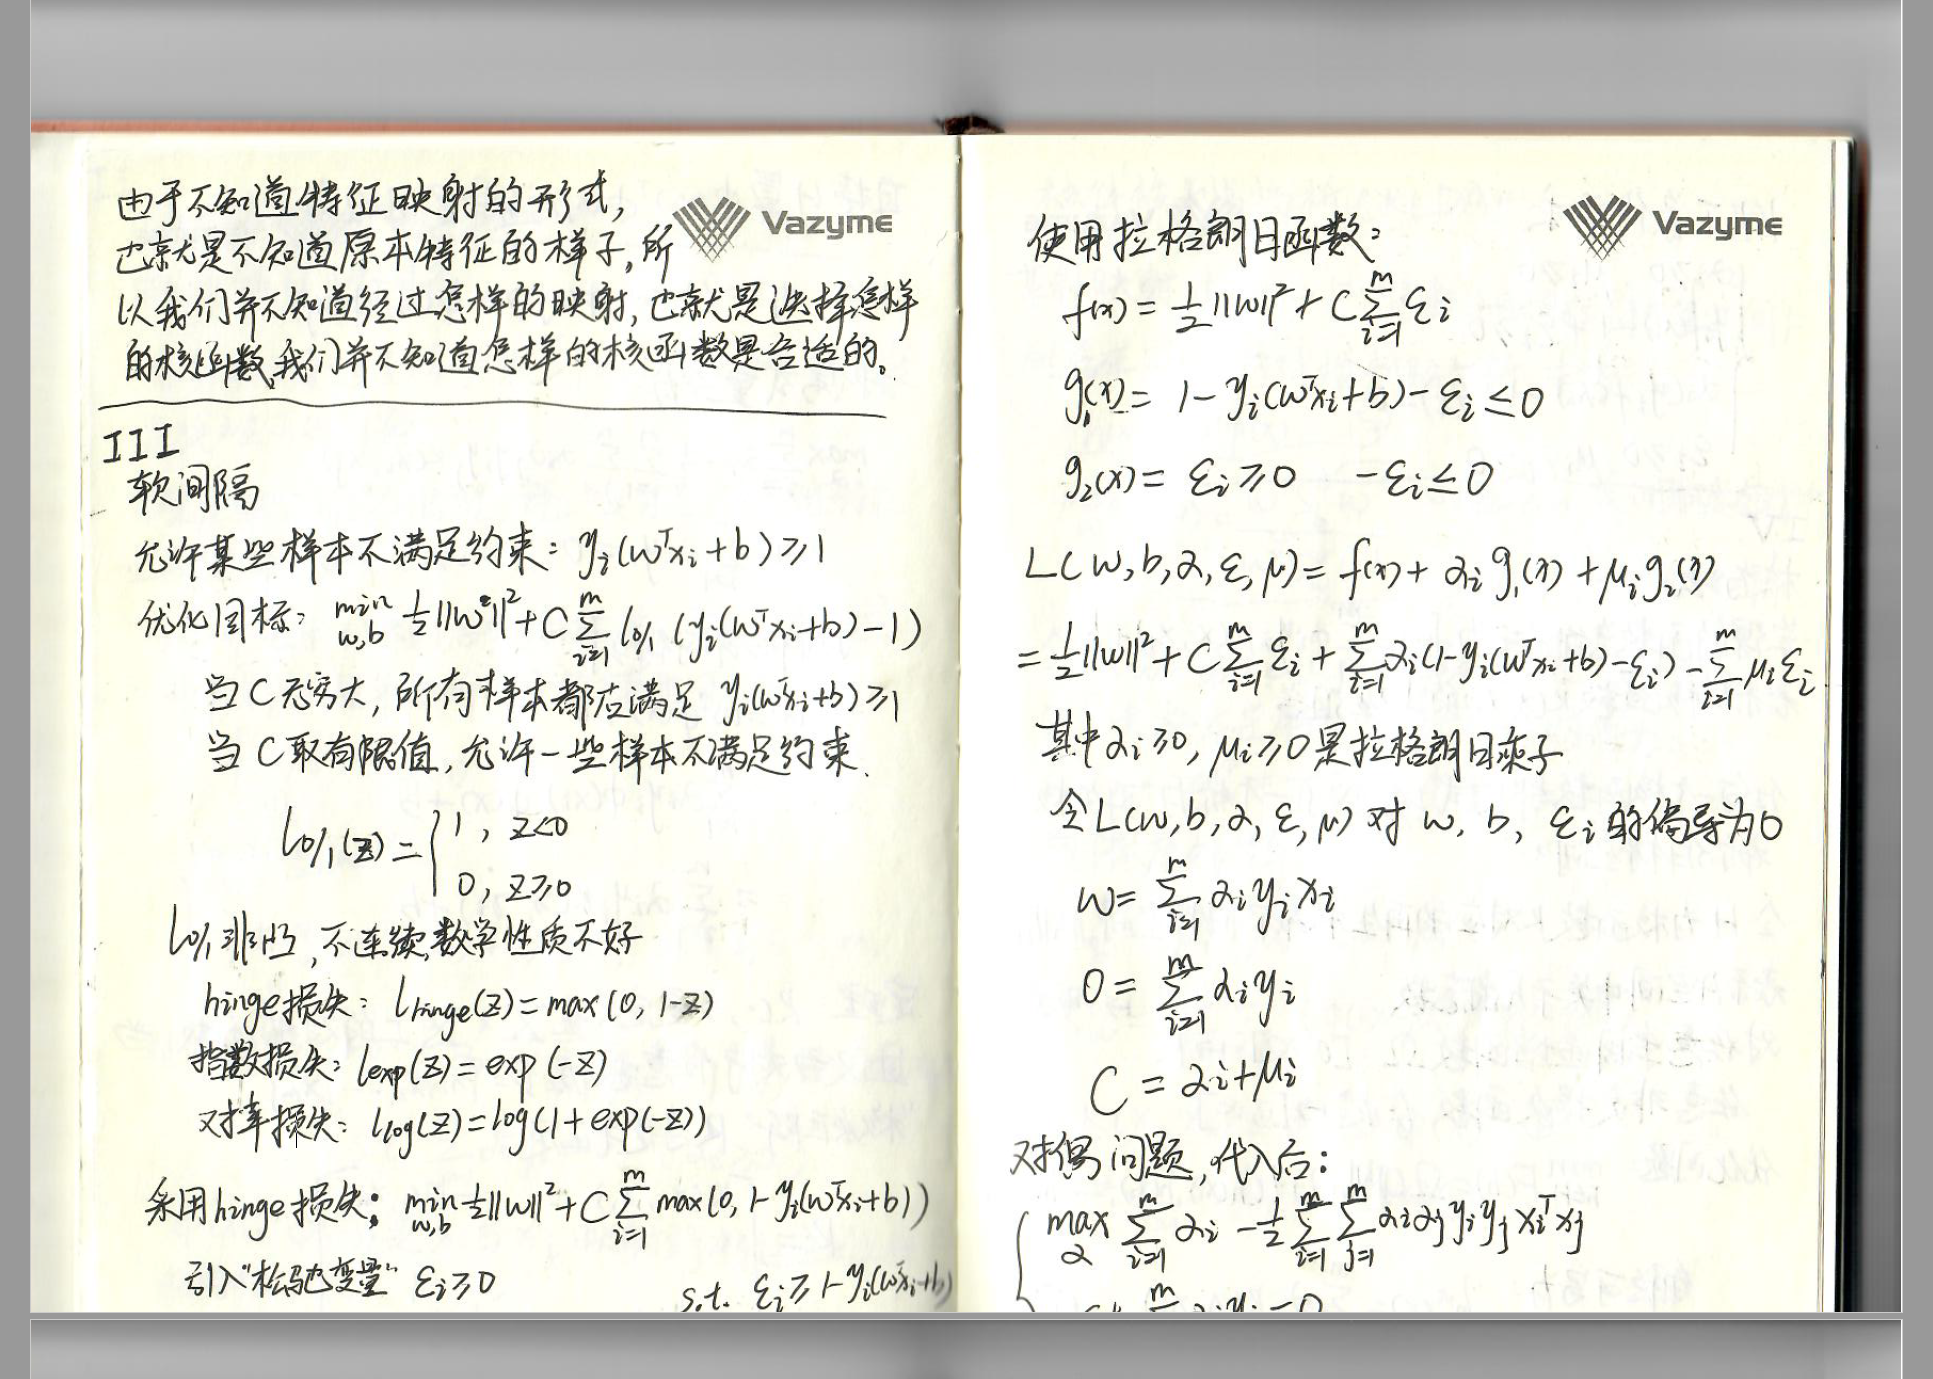 由于不知道特征映射的形式,
Vazyme
也就是不知道原本特征的样子,所
以我们并不知道经过怎样的映射,也就是选择怎样
的核函数,我们并不知道怎样的核函数是合适的。
III
软间隔
允许某些样本不满足约束: yᵢ(wᵀxᵢ+b)≥1
优化目标: min_{w,b} ½||w||²+C∑_{i=1}^{m} l₀/₁(yᵢ(wᵀxᵢ+b)-1)
当C无穷大,所有样本都应满足 yᵢ(wᵀxᵢ+b)≥1
当C取有限值,允许一些样本不满足约束.
l₀/₁(z)={1, z<0
0, z≥0
l₀/₁非凸,不连续,数学性质不好
hinge损失: l_hinge(z)=max(0, 1-z)
指数损失: l_exp(z)=exp(-z)
对率损失: l_log(z)=log(1+exp(-z))
采用hinge损失: min_{w,b} ½||w||²+C∑_{i=1}^{m} max(0, 1-yᵢ(wᵀxᵢ+b))
引入"松弛变量" ξᵢ≥0 s.t. ξᵢ≥1-yᵢ(wᵀxᵢ+b)
Vazyme
使用拉格朗日函数:
f(x)=½||w||²+C∑_{i=1}^{m} ξᵢ
g₁(x)=1-yᵢ(wᵀxᵢ+b)-ξᵢ≤0
g₂(x)=ξᵢ≥0 -ξᵢ≤0
L(w,b,α,ξ,μ)=f(x)+αᵢg₁(x)+μᵢg₂(x)
=½||w||²+C∑_{i=1}^{m} ξᵢ+∑_{i=1}^{m} αᵢ(1-yᵢ(wᵀxᵢ+b)-ξᵢ)-∑_{i=1}^{m} μᵢξᵢ
其中αᵢ≥0, μᵢ≥0是拉格朗日乘子
令L(w,b,α,ξ,μ)对w, b, ξᵢ的偏导为0
w=∑_{i=1}^{m} αᵢyᵢxᵢ
0=∑_{i=1}^{m} αᵢyᵢ
C=αᵢ+μᵢ
对偶问题,代入后:
max_α ∑_{i=1}^{m} αᵢ-½∑_{i=1}^{m}∑_{j=1}^{m} αᵢαⱼyᵢyⱼxᵢᵀxⱼ